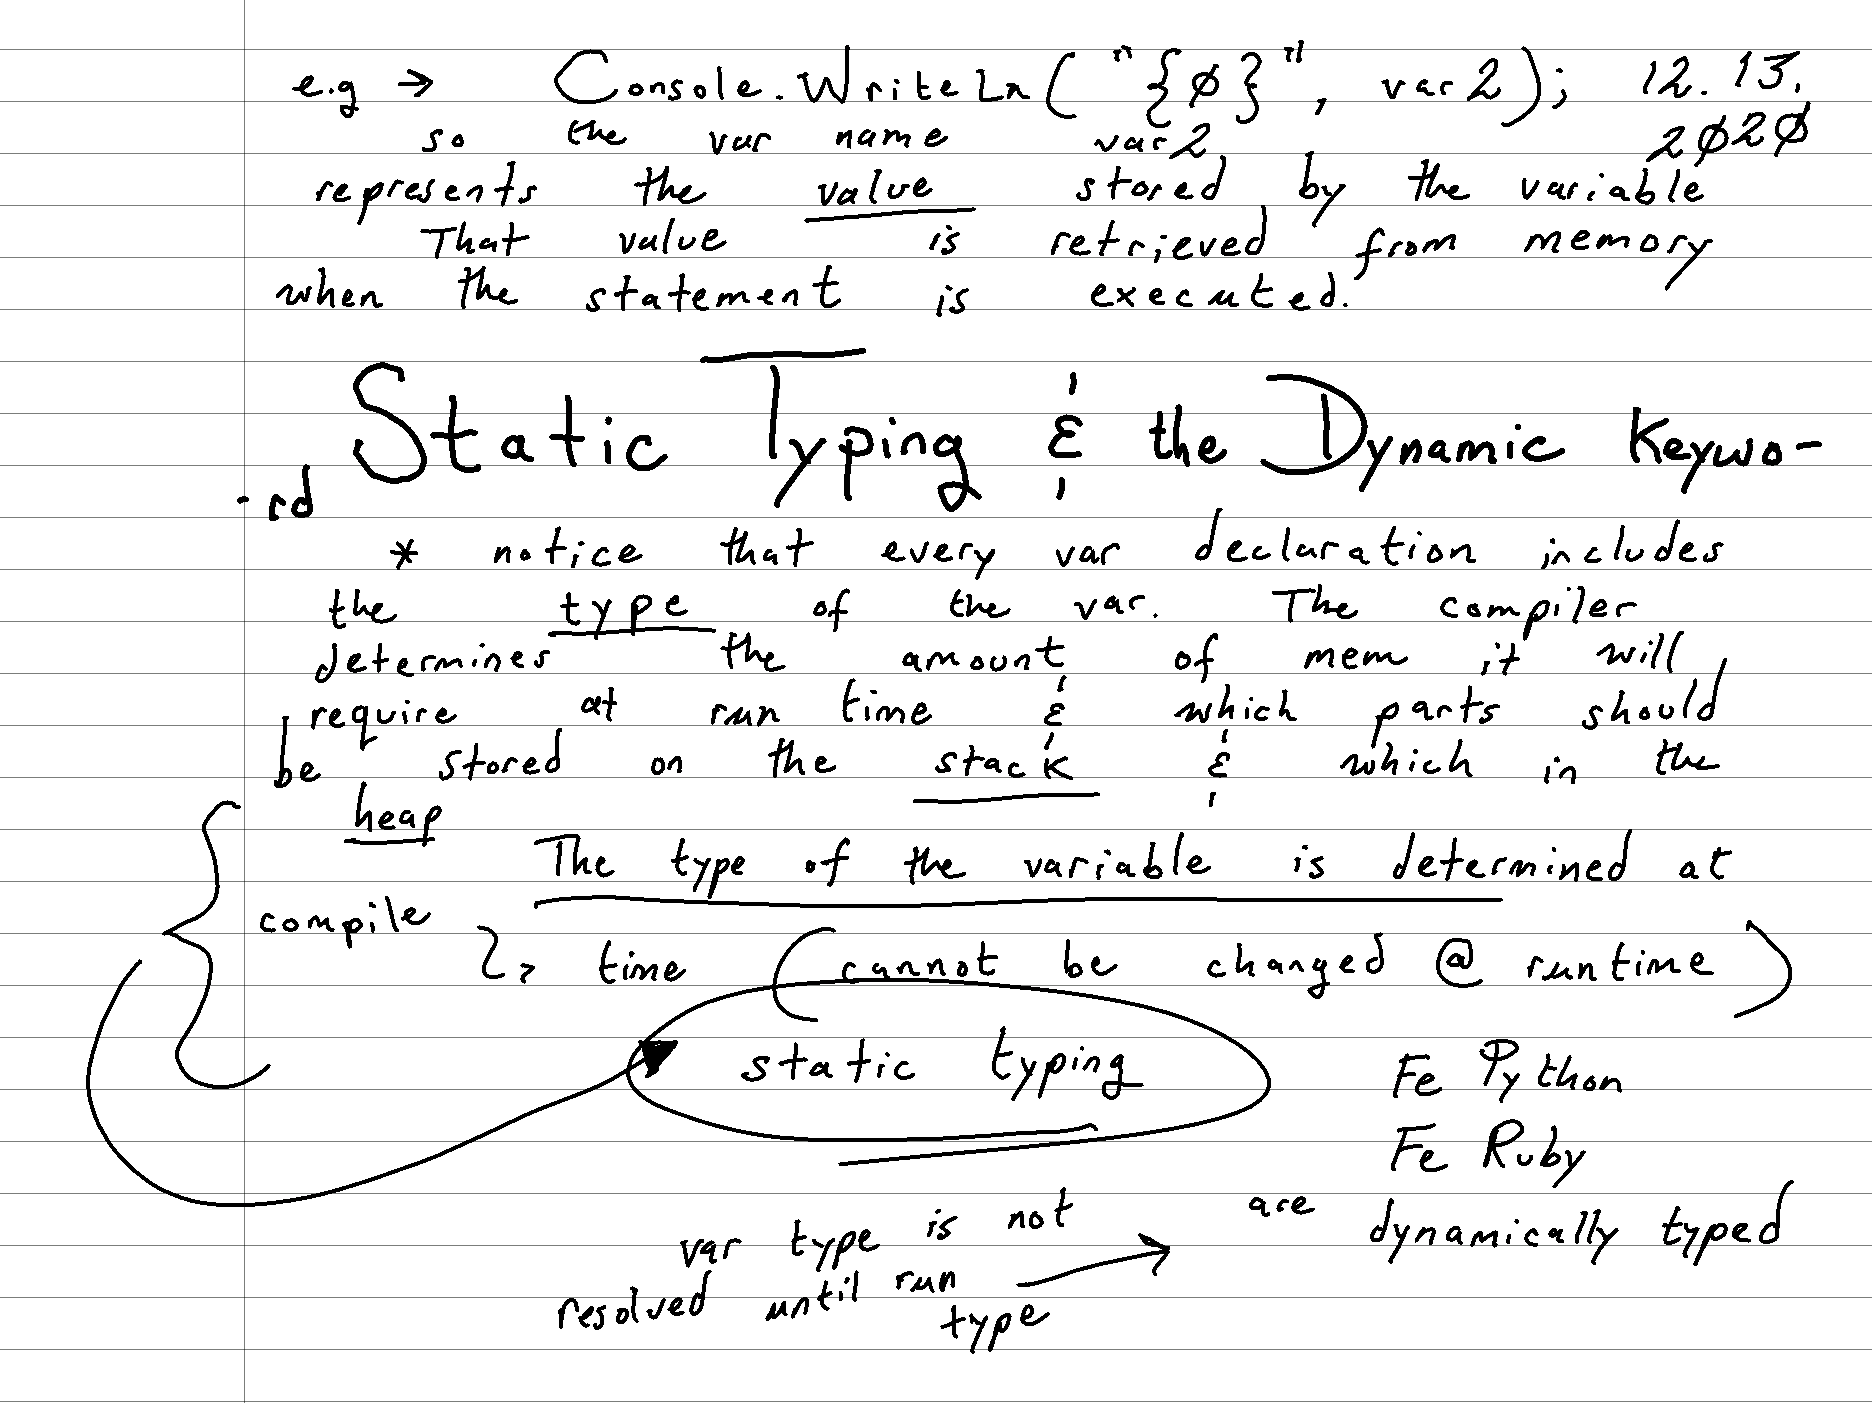 e.g → Console.WriteLn("{0}", var2); 12.13.
so the var name var2 2020
represents the value stored by the variable
That value is retrieved from memory
when the statement is executed.
Static Typing & the Dynamic Keywo-
-rd
* notice that every var declaration includes
the type of the var. The compiler
determines the amount of mem it will
require at run time & which parts should
be stored on the stack & which in the
heap
The type of the variable is determined at
compile
↳ time (cannot be changed @ runtime)
static typing
Fe Python
Fe Ruby
are dynamically typed
var type is not →
resolved until run
type